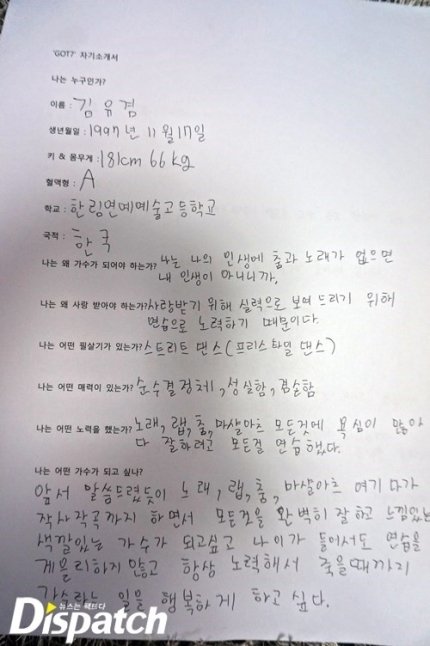 'GOT7' 자기소개서
나는 누구인가?
이름 : 김유겸
생년월일 : 1997년 11월 17일
키 & 몸무게 : 181cm 66kg
혈액형 : A
학교 : 한림연예예술고등학교
국적 : 한국
나는 왜 가수가 되어야 하는가? 나는 나의 인생에 춤과 노래가 없으면
내 인생이 아니니까,
나는 왜 사랑 받아야 하는가? 사랑받기 위해 실력으로 보여 드리기 위해
연습으로 노력하기 때문이다.
나는 어떤 필살기가 있는가? 스트리트 댄스(프리스타일 댄스)
나는 어떤 매력이 있는가? 순수결정체, 성실함, 겸손함
나는 어떤 노력을 했는가? 노래, 랩, 춤, 마샬아츠 모든것에 욕심이 많아
다 잘하려고 모든걸 연습했다.
나는 어떤 가수가 되고 싶나?
앞서 말씀드렸듯이 노래, 랩, 춤, 마샬아츠 여기다가
작사작곡까지 하면서 모든것을 완벽히 잘하고 느낌있는
색깔있는 가수가 되고싶고 나이가 들어서도 연습을
게을리하지않고 항상 노력해서 죽을때까지
가수라는 일을 행복하게 하고 싶다.
뉴스는 팩트다
Dispatch